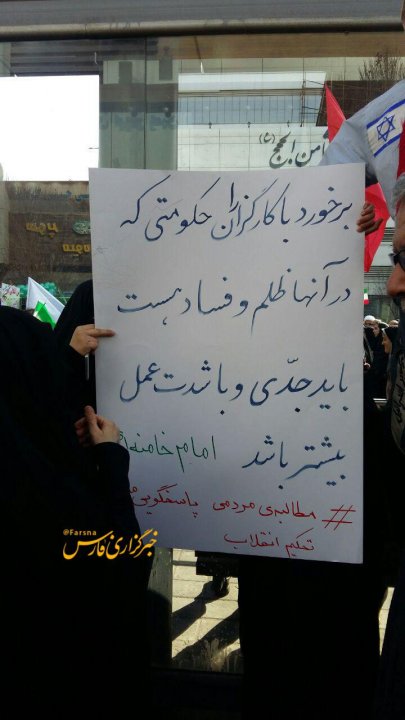 ثامن الحجج (ع)
برخورد با کارگزاران حکومتی که
در آنها ظلم و فساد هست
باید جدّی و با شدت عمل
بیشتر باشد امام خامنه‌ای
# مطالبه‌ی مردمی پاسخگویی
تحکیم انقلاب
@Farsna
خبرگزاری فارس